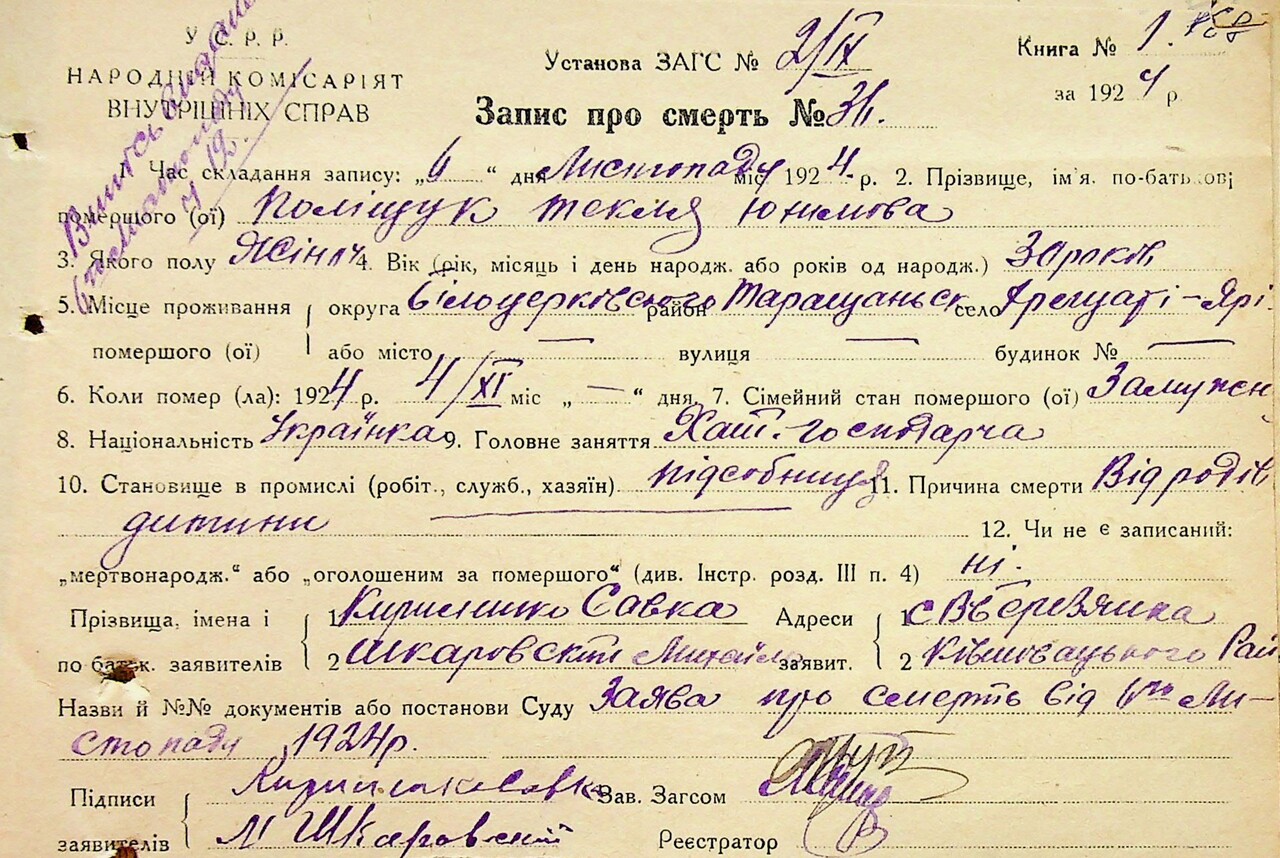 У. С. Р. Р.
НАРОДНІЙ КОМІСАРІЯТ
ВНУТРІШНІХ СПРАВ
Установа ЗАГС № 2/IX
Книга № 1.
за 1924 р.
Запис про смерть № 31.
1. Час складання запису: „6“ дня Листопаду міс. 1924 р. 2. Прізвище, ім'я. по-батькові
помершого (ої) Поліщук Текля Юхимова
3. Якого полу Жіноч 4. Вік (рік, місяць і день народж. або років од народж.) 30 років
5. Місце проживання округа Білоцерковського район Таращаньск село -Ярі
помершого (ої) або місто — вулиця — будинок № —
6. Коли помер (ла): 1924 р. 4/XI міс „—“ дня. 7. Сімейний стан помершого (ої) Замужн
8. Національність Українка 9. Головне заняття Хат. господарча
10. Становище в промислі (робіт., служб., хазяїн) підсобниця 11. Причина смерти Від родів
дитини 12. Чи не є записаний:
„мертвонародж.“ або „оголошеним за помершого“ (див. Інстр. розд. III п. 4) ні.
Прізвища, імена і 1 Савка Адреси 1 с. Березянка
по батьк. заявителів 2 Шкаровский Михайло заявит. 2 Рай
Назви й №№ документів або постанови Суду Заява про смерть від 6го Ли-
стопаду 1924 р.
Підписи Зав. Загсом
заявителів М Шкаровский Реєстратор